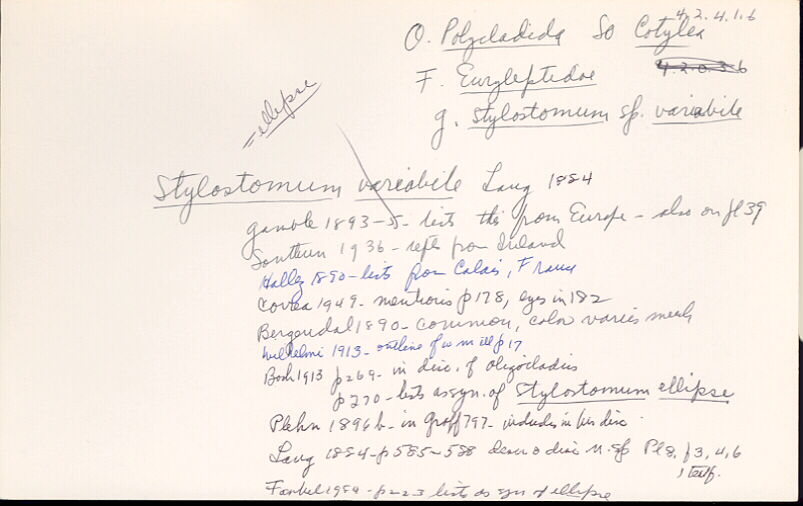 4.2.4.1.6
O. Polycladida So Cotylea
4.2.0.3.6
F. Euryleptidae
g. Stylostomum sp. variabile
= ellipse
Stylostomum variabile Lang 1884
Gamble 1893-5- lists this from Europe - also on p 39
Southern 1936- repts from Ireland
Hallez 1890- lists from Calais, France
Correa 1949- mentions p178, eyes in 182
Bergendal 1890- common, color varies much
Wilhelmi 1913- outline of ill p17
Bock 1913 p269- in disc. of Oligocladus
p270- lists as syn. of Stylostomum ellipse
Plehn 1896b- in Groff 797- includes in his disc.
Lang 1884- p585-588 descr & disc n. sp Pl 8, f 3, 4, 6
, text f.
1984- p223 lists as syn of ellipse